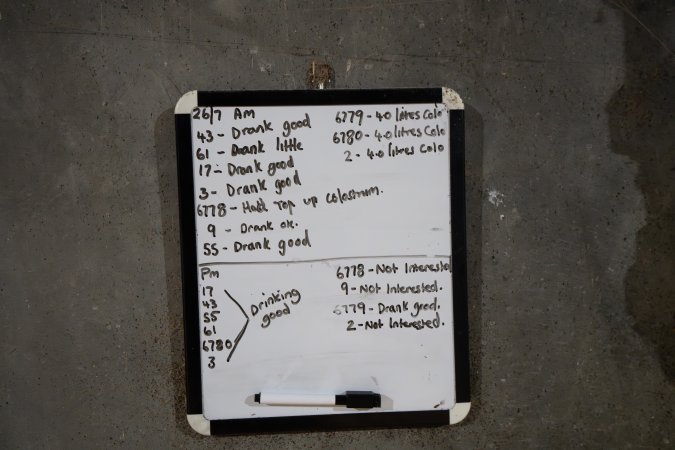 26/7 Am
43 - Drank good
61 - Drank little
17 - Drank good
3 - Drank good
6778 - Had top up colostrum.
9 - Drank ok.
55 - Drank good
6779 - 4.0 litres Colo
6780 - 4.0 litres Colo
2 - 4.0 litres Colo
Pm
17
43
55
61
6780
3
Drinking
good
6778 - Not Interested
9 - Not Interested.
6779 - Drank good.
2 - Not Interested.